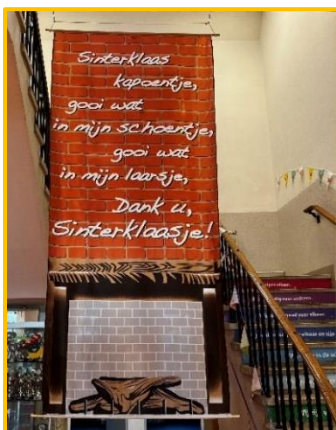 Sinterklaas
kapoentje,
gooi wat
in mijn schoentje,
gooi wat
in mijn laarsje,
Dank u,
Sinterklaasje!